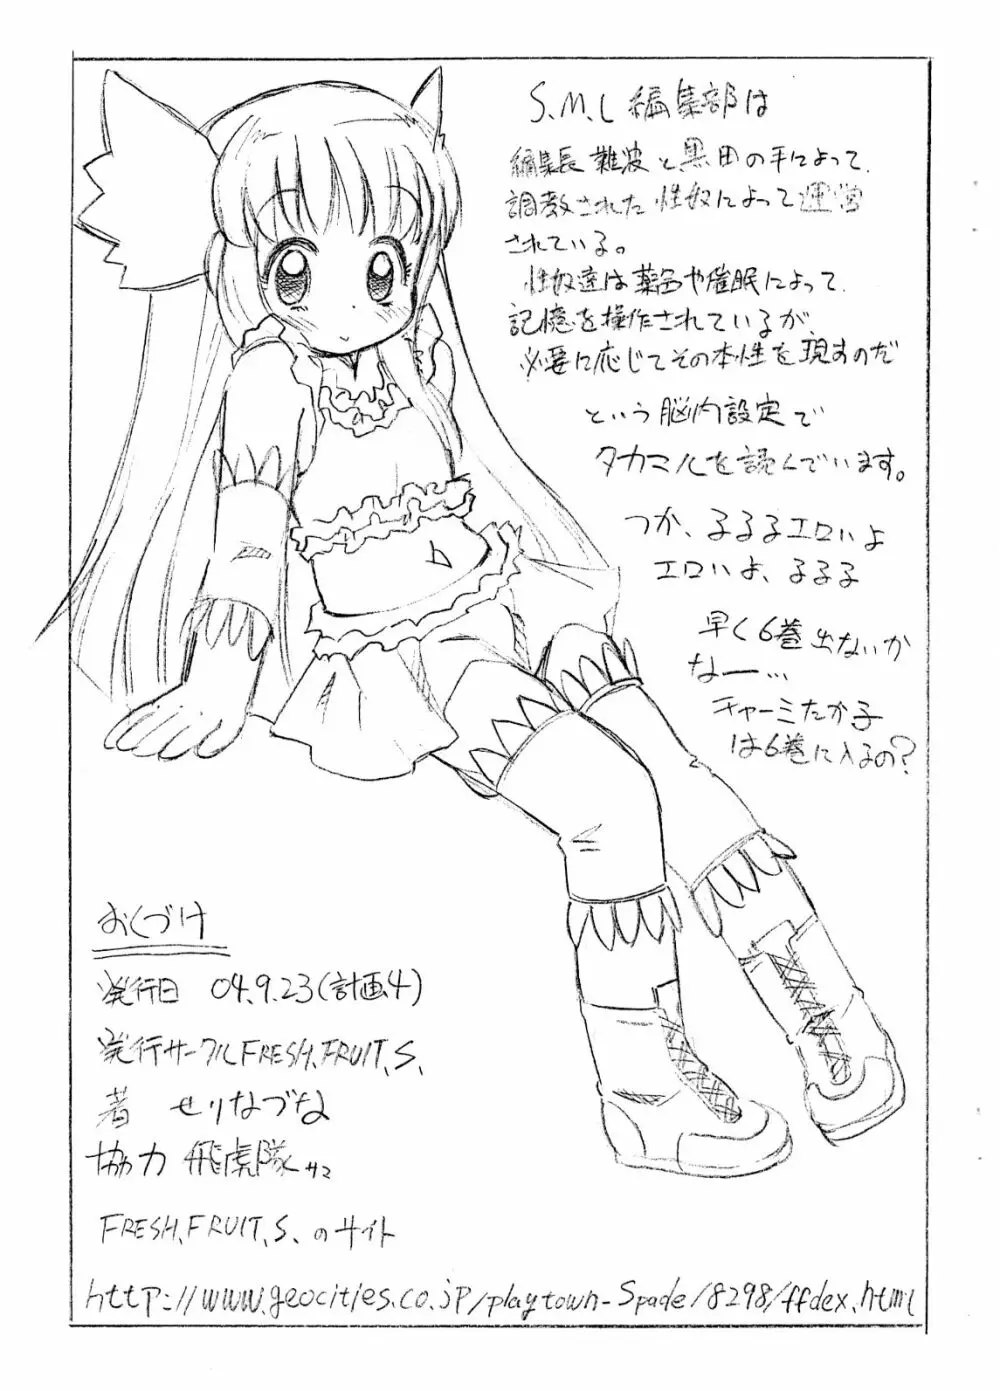 S.M.L 編集部は
編集長 難波と黒田の手によって、
調教された性奴によって運営
されている。
性奴達は薬品や催眠によって、
記憶を操作されているが、
必要に応じてその本性を現すのだ
という脳内設定で
タカマルを読んでいます。
つか、るるるエロいよ
エロいよ、るるる
早く6巻出ないか
なー…
チャーミたか子
は6巻に入るの?
おくづけ
発行日 04.9.23(計画4)
発行サークル FRESH.FRUIT.S.
著 せりなづな
協力 飛虎隊サマ
FRESH.FRUIT.S. のサイト
http://www.geocities.co.jp/playtown-Spade/8298/ffdex.html